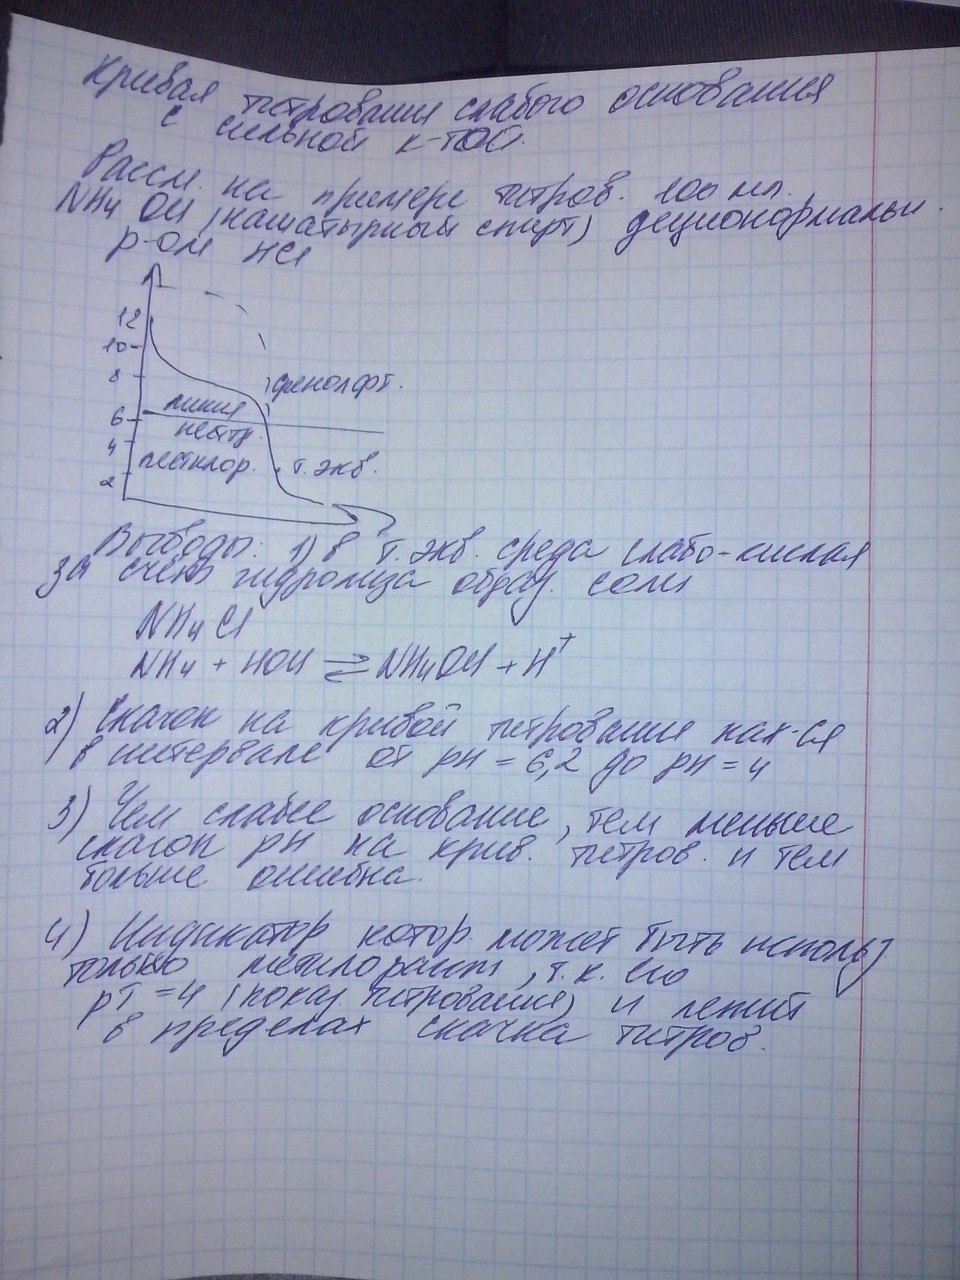 Кривая титрования слабого основания
с сильной к-той.
Рассм. на примере титров. 100 мл.
NH4OH (нашатырный спирт) децинормальн.
р-ом HCl
12
10
8
6
4
2
фенолфт.
линия
нейтр.
метилор.
т. экв.
Выводы: 1) в т. экв. среда слабо-кислая
за счёт гидролиза образ. соли
NH4Cl
NH4 + HOH ⇌ NH4OH + H⁺
2) Скачок на кривой титрования нах-ся
в интервале от pH = 6,2 до pH = 4
3) Чем слабее основание, тем меньше
скачок pH на крив. титров. и тем
больше ошибка.
4) Индикатор котор. может быть использ
только метилоранж, т.к. его
pT = 4 (показ. титрования) и лежит
в пределах скачка титров.